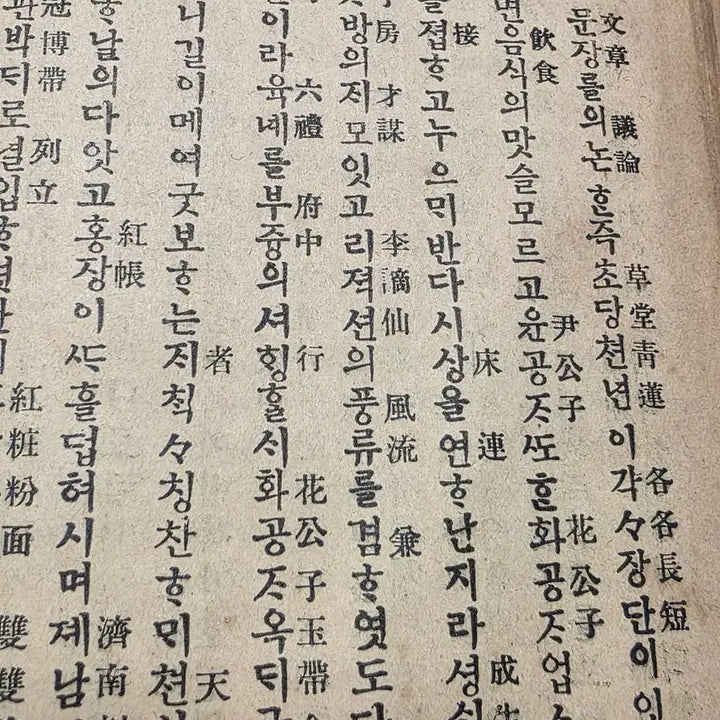 文章 議論 草堂靑蓮 各各長短
문장를의논ᄒᆞᆫ즉초당쳥년이각々장단이
飮食 尹公子 花公子
면음식의맛슬모르고윤공ᄌᆞᄯᅩᄒᆞᆫ화공ᄌᆞ업
接 床 連 成
을졉ᄒᆞ고누으ᄆᆡ반다시상을연ᄒᆞ난지라셩
房 才謀 李謫仙 風流 兼
방의ᄌᆡ모잇고리젹션의풍류를겸ᄒᆞ엿도다
六禮 府中 行 花公子玉帶
이라육녜를부즁의셔ᄒᆡᆼᄒᆞᆯᄉᆡ화공ᄌᆞ옥ᄃᆡ
者 天
니길이메여굿보ᄒᆞ는ᄌᆡ칙々칭찬ᄒᆞᄆᆡ쳔
紅帳 濟南
날의다앗고홍장이ᄯᅡ흘덥허시며졔남
冠博帶 列立 紅粧粉面 雙雙
관박ᄃᆡ로녈입